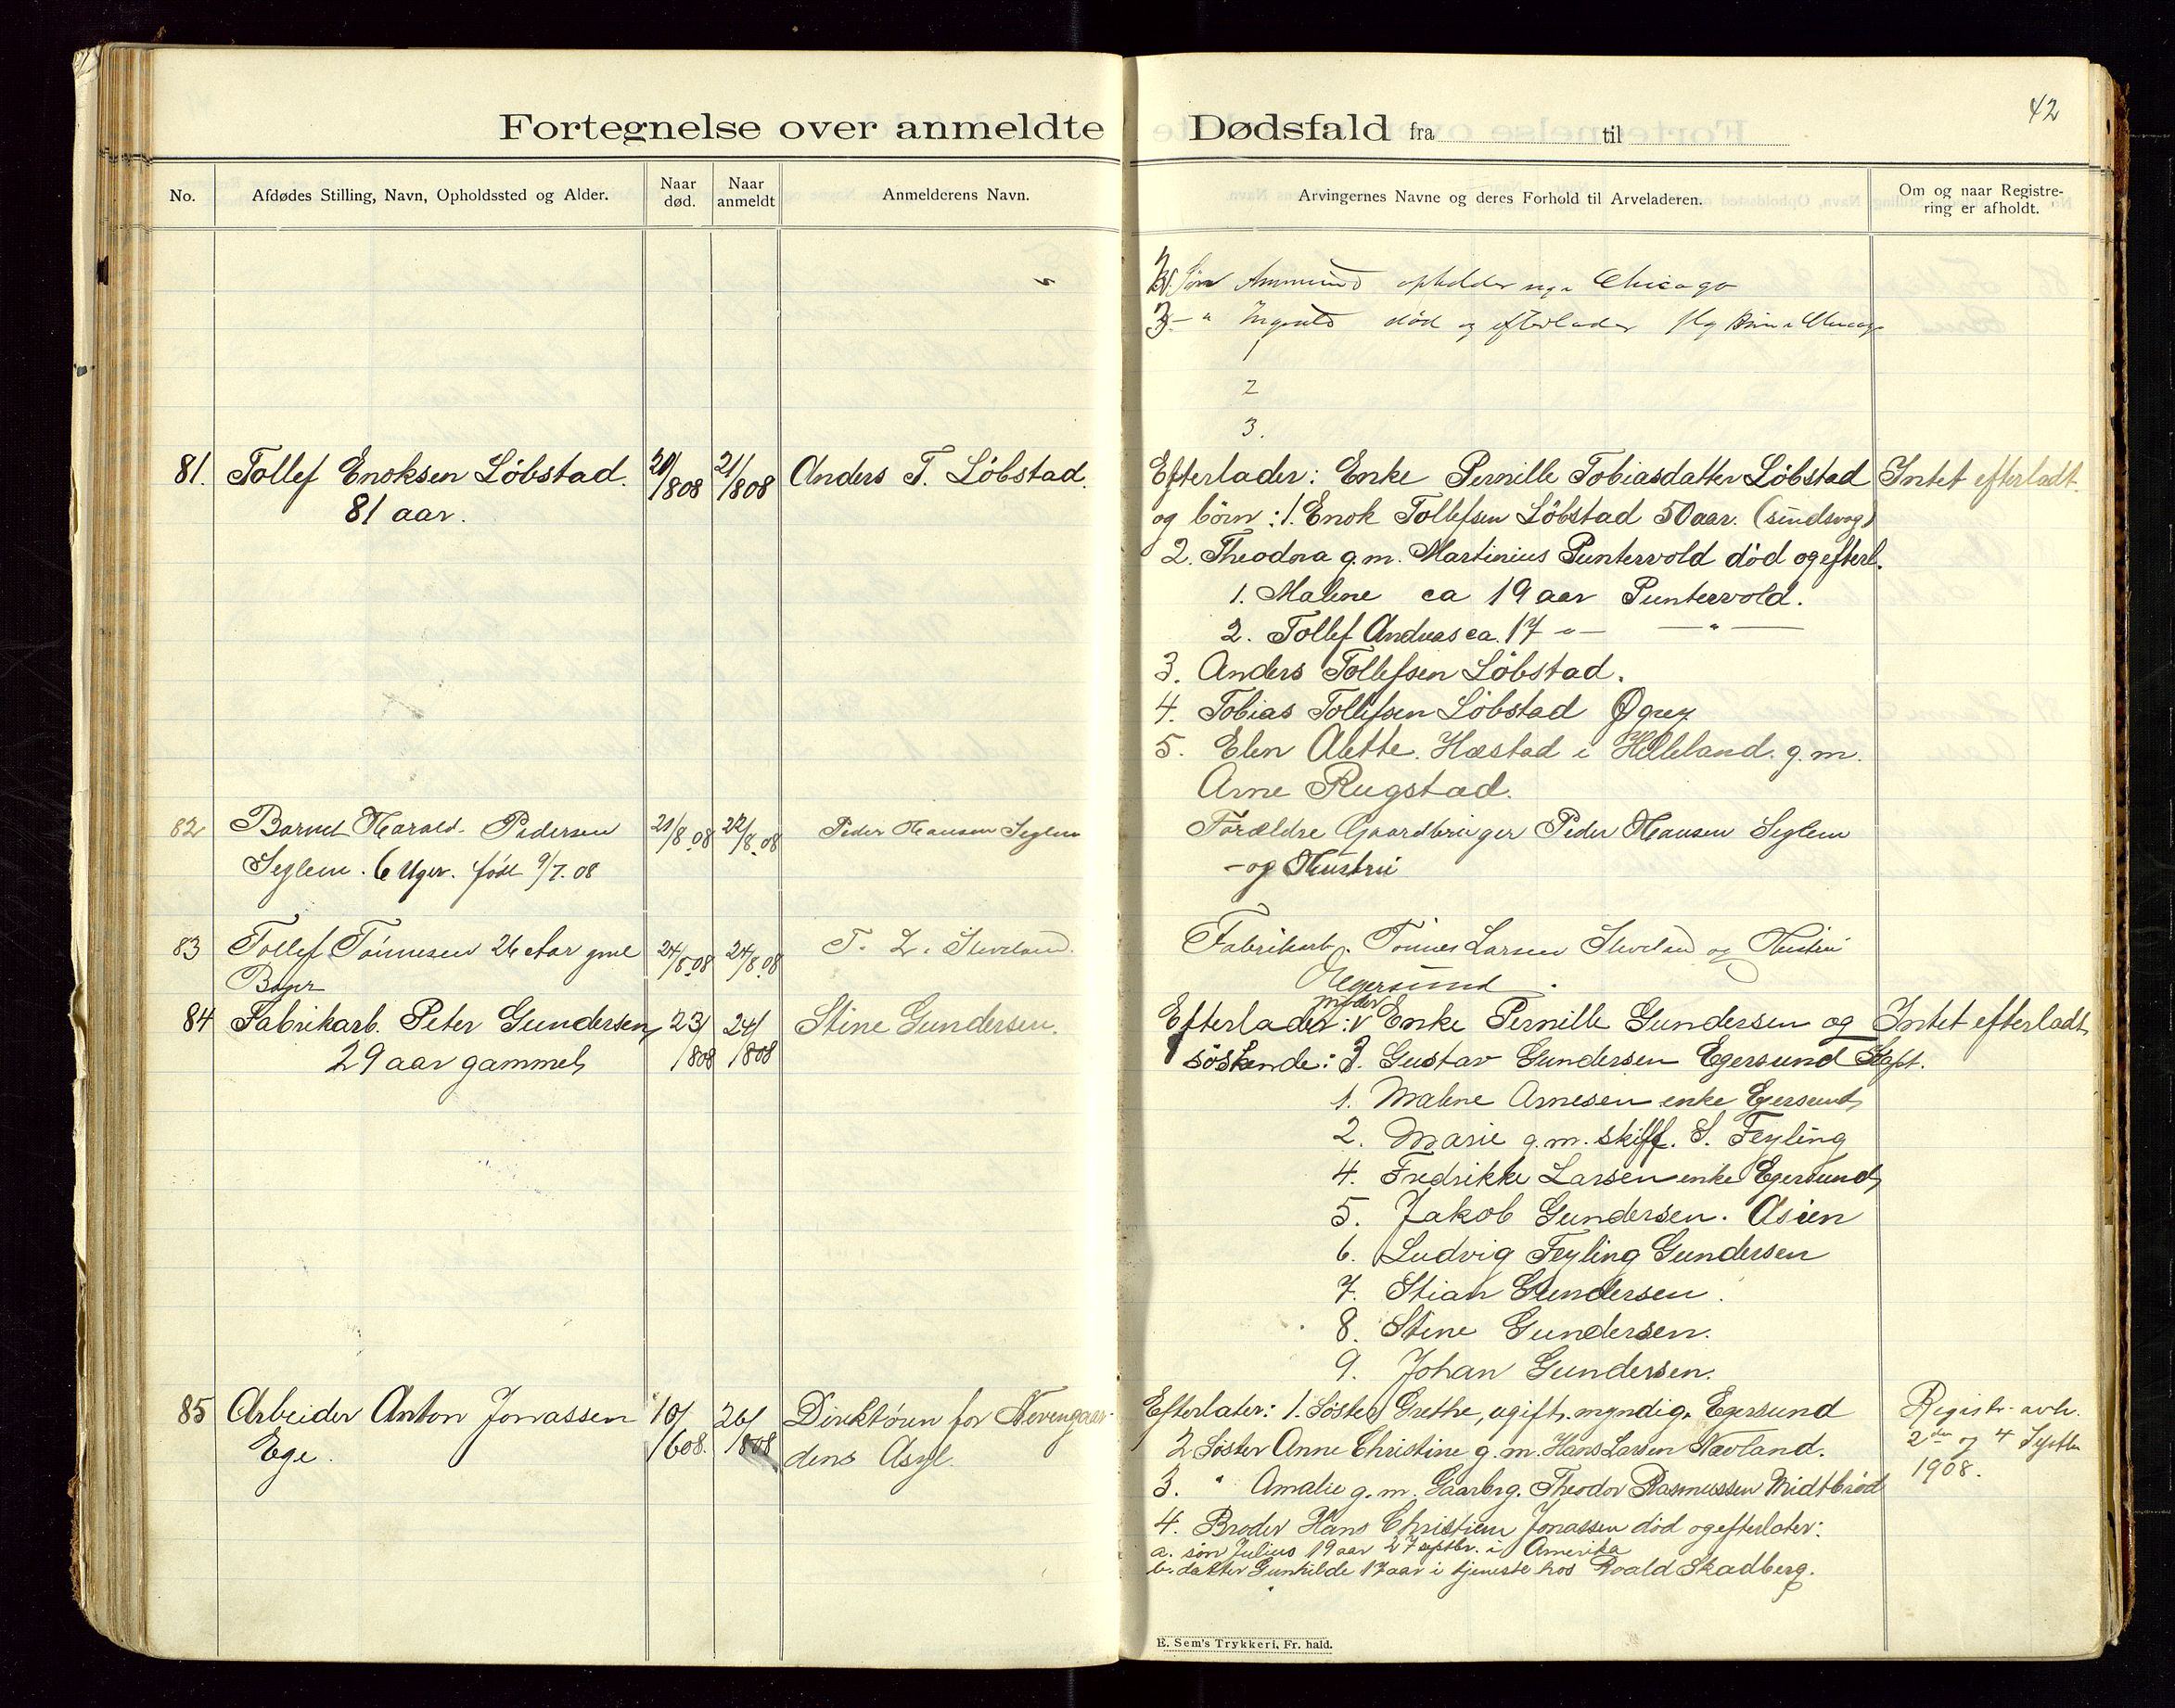 42
Fortegnelse over anmeldte Dødsfald fra til
No. Afdødes Stilling, Navn, Opholdssted og Alder. Naar død. Naar anmeldt Anmelderens Navn. Arvingernes Navne og deres Forhold til Arveladeren. Om og naar Registrering er afholdt.
2. Søn Ammund opholder sig i Chicago
3 - " Ingvald død og efterlader flg Børn i Chicago
1
2
3.
81. Tollef Enoksen Löbstad. 20/808 21/808 Anders T. Löbstad. Efterlader: Enke Pernille Tobiasdatter Löbstad Intet efterladt.
81 aar. og börn: 1. Enok Tollefsen Löbstad 50 aar. (sindsvag)
2. Theodora g.m. Martinius Puntervold död og efterl.
1. Malene ca 19 aar Puntervold.
2. Tollef Andreas ca. 17 - " - - " -
3. Anders Tollefsen Löbstad.
4. Tobias Tollefsen Löbstad Ögrey
5. Elen Alette Hæstad i Helleland. g.m.
Arne Rugstad.
82 Barnet Harald Pedersen 21/8.08 22/8.08 Peder Hansen Seglem Forældre Gaardbruger Peder Hansen Seglem
Seglem. 6 Uger. født 9/7.08 - og Hustru
83 Tollef Tönnesen 26 Aar gml 24/8.08 24/8.08 T. L. Skvelam Fabrikarb. Tönnes Larsen og Hustru
Bager Egersund.
84 Fabrikarb. Peter Gundersen 23/808 24/808 Stine Gundersen. Efterlader: moder Enke Pernille Gundersen og Intet efterladt
29 aar gammel söskende: 3. Gustav Gundersen Egersund
1. Malene Arnesen enke Egersund
2. Marie g.m. skiff. S. Feyling
4. Fredrikke Larsen enke Egersund
5. Jakob Gundersen. Asien
6. Ludvig Feyling Gundersen
7. Stian Gundersen.
8. Stine Gundersen.
9. Johan Gundersen.
85 Arbeider Anton Jonassen 10/608. 26/808 Direktören for Nevengaardens Asyl. Efterlater: 1. Söster Grethe, ugift. myndig. Egersund Registr. avh.
Ege. 2 Söster Anne Christine g.m. Hans Larsen Nævland. 2den og 4 Septbr
3. " Amalie g.m. Gaarbrg. Theodor Rasmussen Midtbröd 1908.
4. Broder Hans Christian Jonassen död og efterlater:
a. sön Julius 19 aar 27 septbr. i Amerika
b. datter Gunhilde 17 aar i tjeneste hos Roald Skadberg.
E. Sem's Trykkeri, Fr. hald.